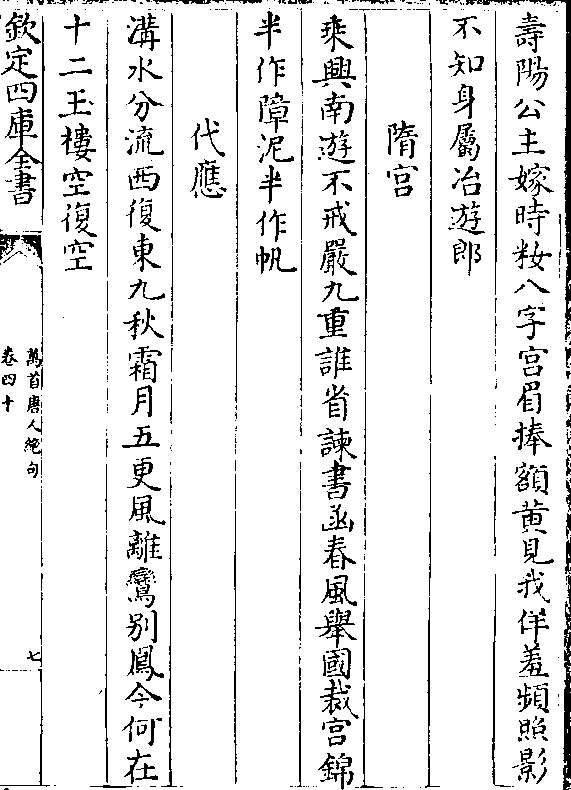 壽陽公主嫁時粧八字宫眉捧額黄見我佯羞頻照影
不知身屬冶遊郎
隋宫
乗興南遊不戒嚴九重誰省諫書函春風舉國裁宫錦
半作障泥半作帆
代應
溝水分流西復東九秋霜月五更風離鸞别鳳今何在
十二玉樓空復空
欽定四庫全書
萬首唐人絶句
卷四十
七